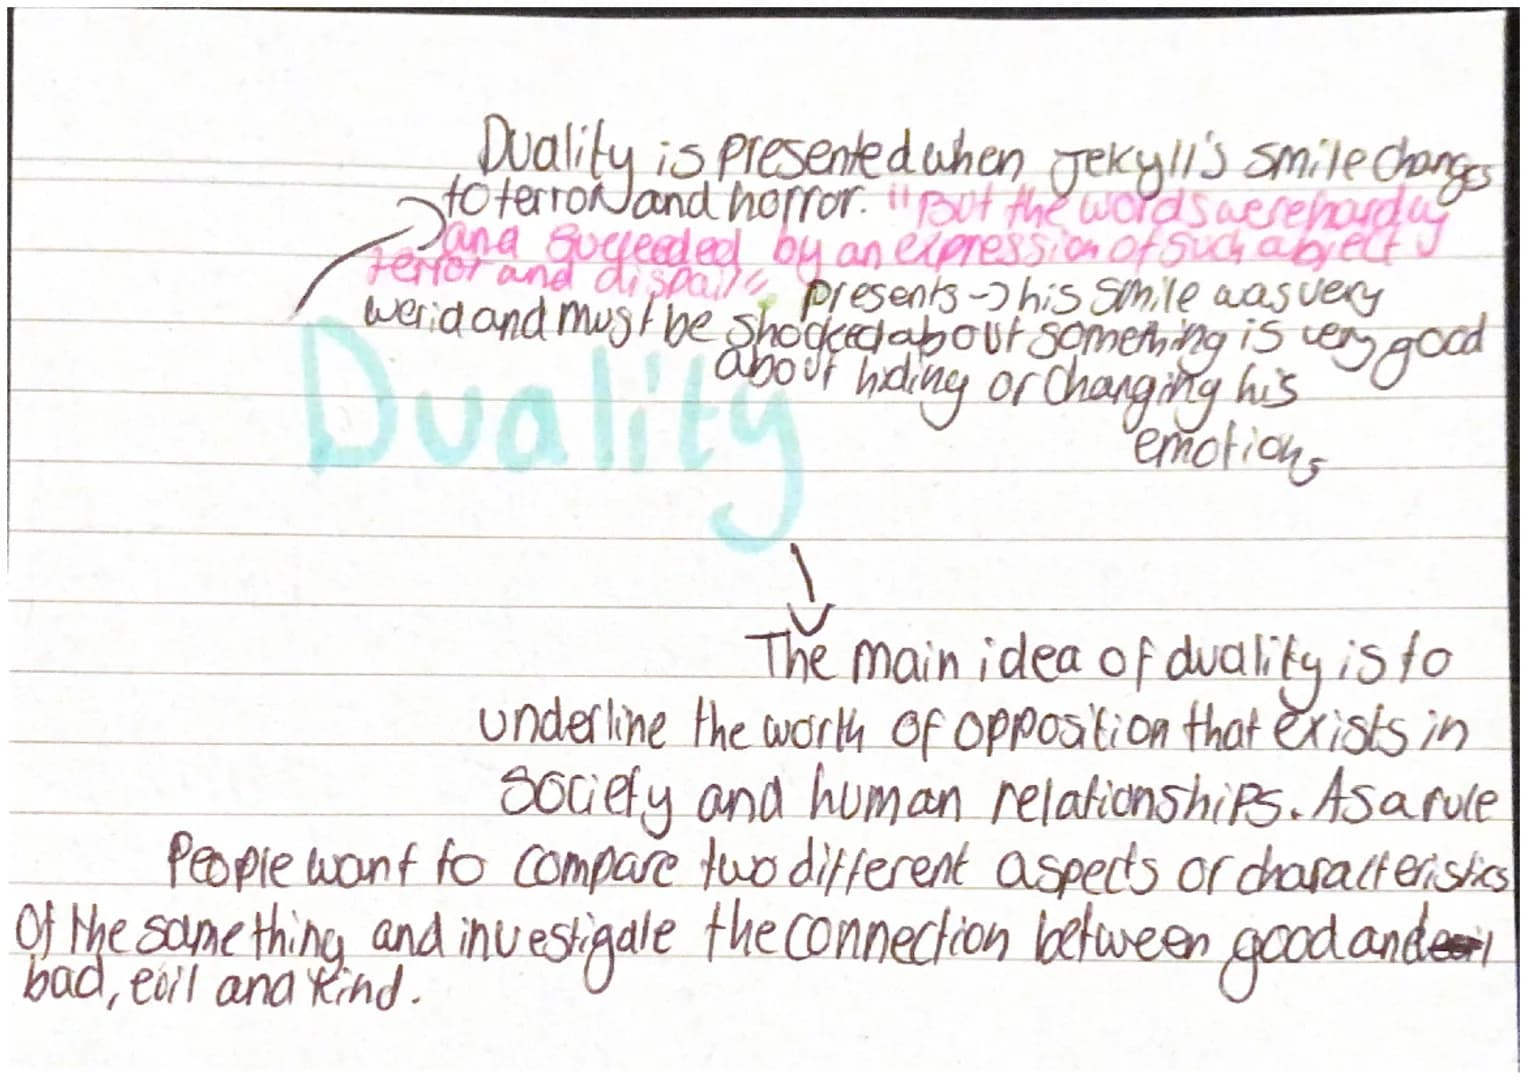 Duality is presented when Jekyll's smile changes
to terror and horror. "But the words were hardly
and succeeded by an expression of such abject
terror and dispair" presents → his smile was very
werid and must be shocked about something is very good
about hiding or changing his
emotions
Duality
The main idea of duality is to
underline the worth of opposition that exists in
society and human relationships. As a rule
people want to compare two different aspects or characteristics
of the same thing and investigate the connection between good and
bad, evil and kind.